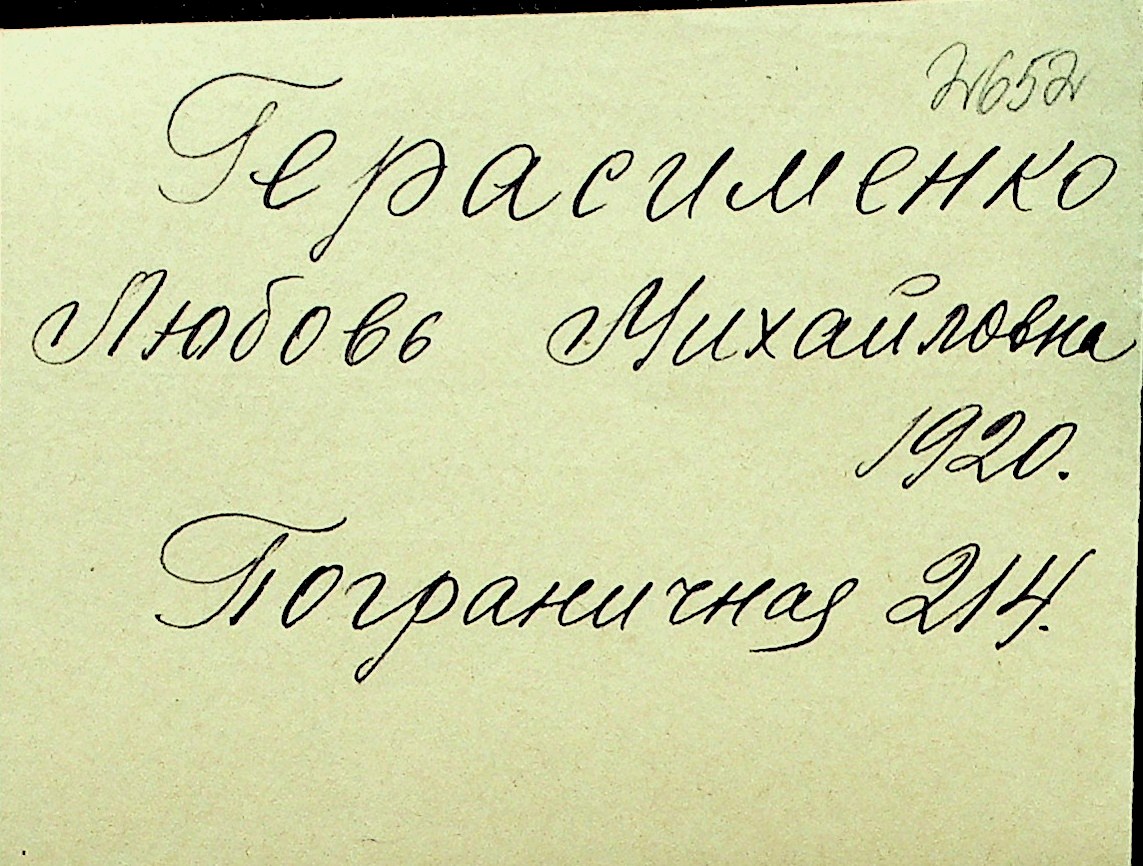 2652
Герасименко
Любовь Михайловна
1920.
Пограничная 214.